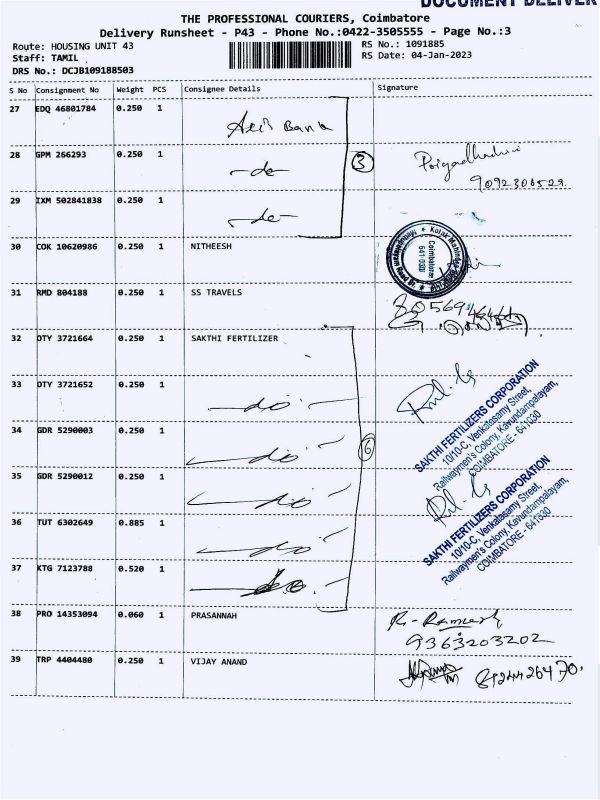 DOCUMENT DELIVER
THE PROFESSIONAL COURIERS, Coimbatore
Delivery Runsheet - P43 - Phone No.:0422-3505555 - Page No.:3
Route: HOUSING UNIT 43
RS No.: 1091885
Staff: TAMIL
RS Date: 04-Jan-2023
DRS No.: DCJB109188503
S No Consignment No Weight PCS Consignee Details Signature
27 EDQ 46801784 0.250 1 Axis Bank
28 GPM 266293 0.250 1 -do-
3
9092306529.
29 IXM 502841838 0.250 1 -do-
30 COK 10620986 0.250 1 NITHEESH
Kotak Mahindra
Coimbatore
641 030
31 RMD 804188 0.250 1 SS TRAVELS
32 DTY 3721664 0.250 1 SAKTHI FERTILIZER
33 DTY 3721652 0.250 1 -do-
SAKTHI FERTILIZERS CORPORATION
10/10-C, Venkatasamy Street,
Railwaymen's Colony, Kavundampalayam,
COIMBATORE - 641030
34 GDR 5290003 0.250 1 -do-
6
35 GDR 5290012 0.250 1 -do-
SAKTHI FERTILIZERS CORPORATION
10/10-C, Venkatasamy Street,
Railwaymen's Colony, Kavundampalayam,
COIMBATORE - 641030
36 TUT 6302649 0.885 1 -do-
37 KTG 7123788 0.520 1 -do-
38 PRO 14353094 0.060 1 PRASANNAH R. Ramesh
9363203202
39 TRP 4404480 0.250 1 VIJAY ANAND